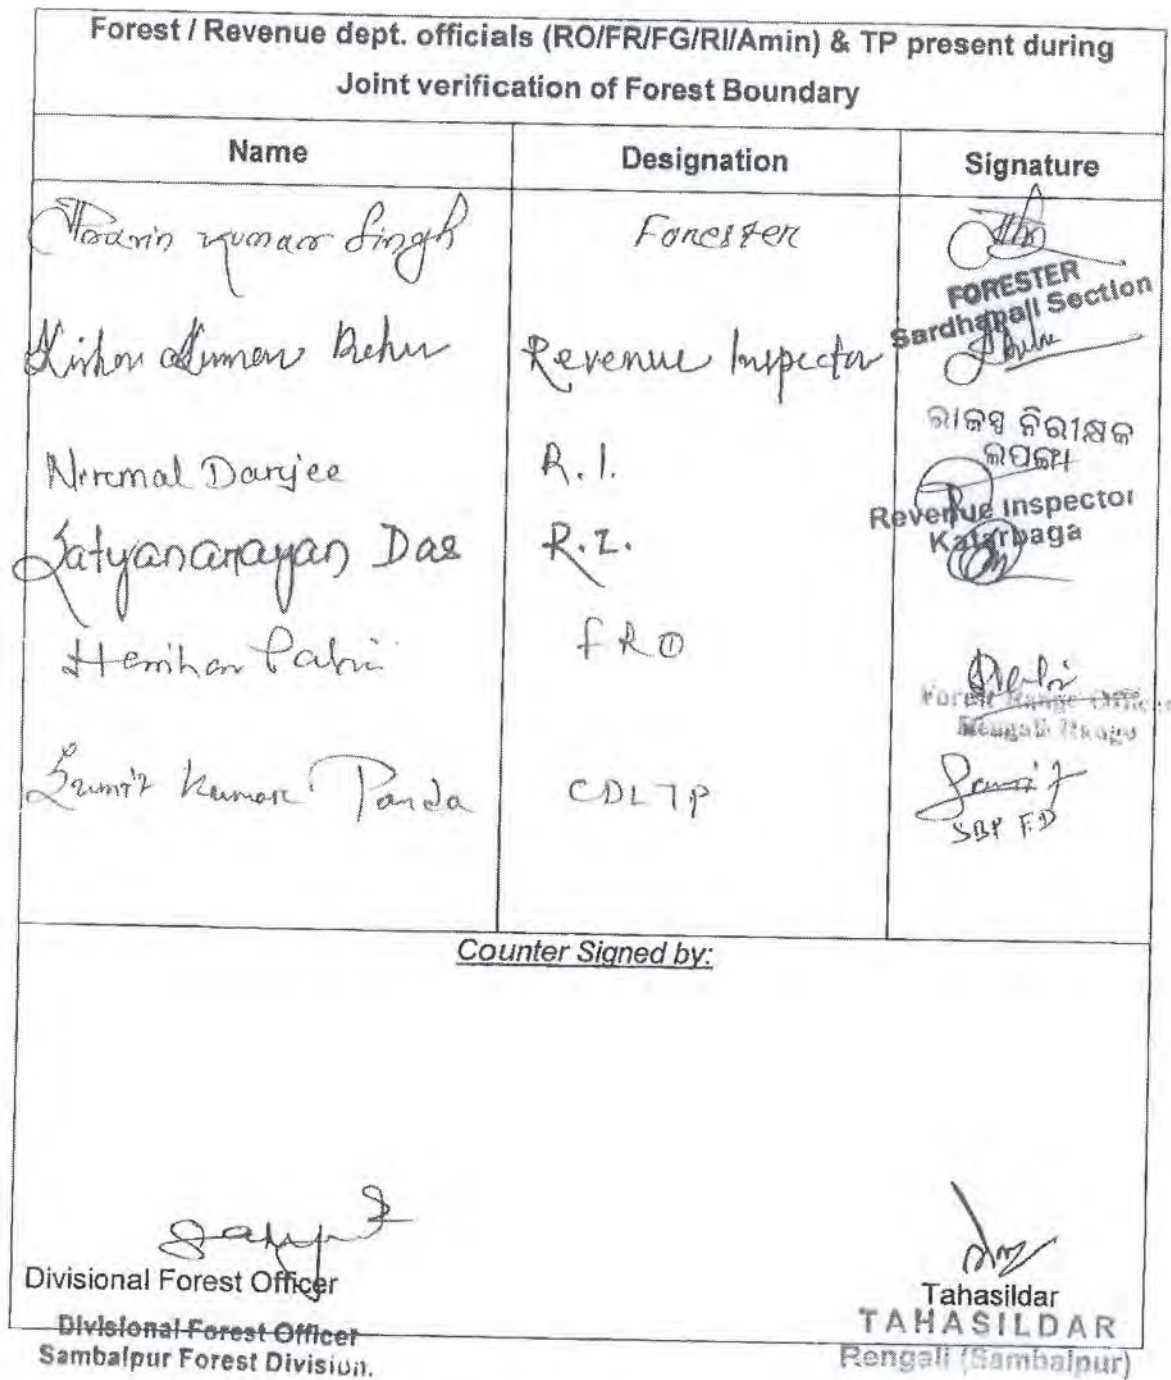 Forest / Revenue dept. officials (RO/FR/FG/RI/Amin) & TP present during
Joint verification of Forest Boundary
Name Designation Signature
Kumar Singh Forester
FORESTER
Sardhapali Section
Kishor Kumar Behu Revenue Inspector
ରାଜସ୍ୱ ନିରୀକ୍ଷକ
ଲପଙ୍ଗା
Nirmal Darjee R.I.
Revenue Inspector
Katarbaga
Satyanarayan Das R.I.
FRO
Forest Range Officer
Rengali Range
Sumit Kumar Panda CDLTP
Sumit
SBP FD
Counter Signed by:
Divisional Forest Officer
Tahasildar
Divisional Forest Officer
Sambalpur Forest Division.
TAHASILDAR
Rengali (Sambalpur)